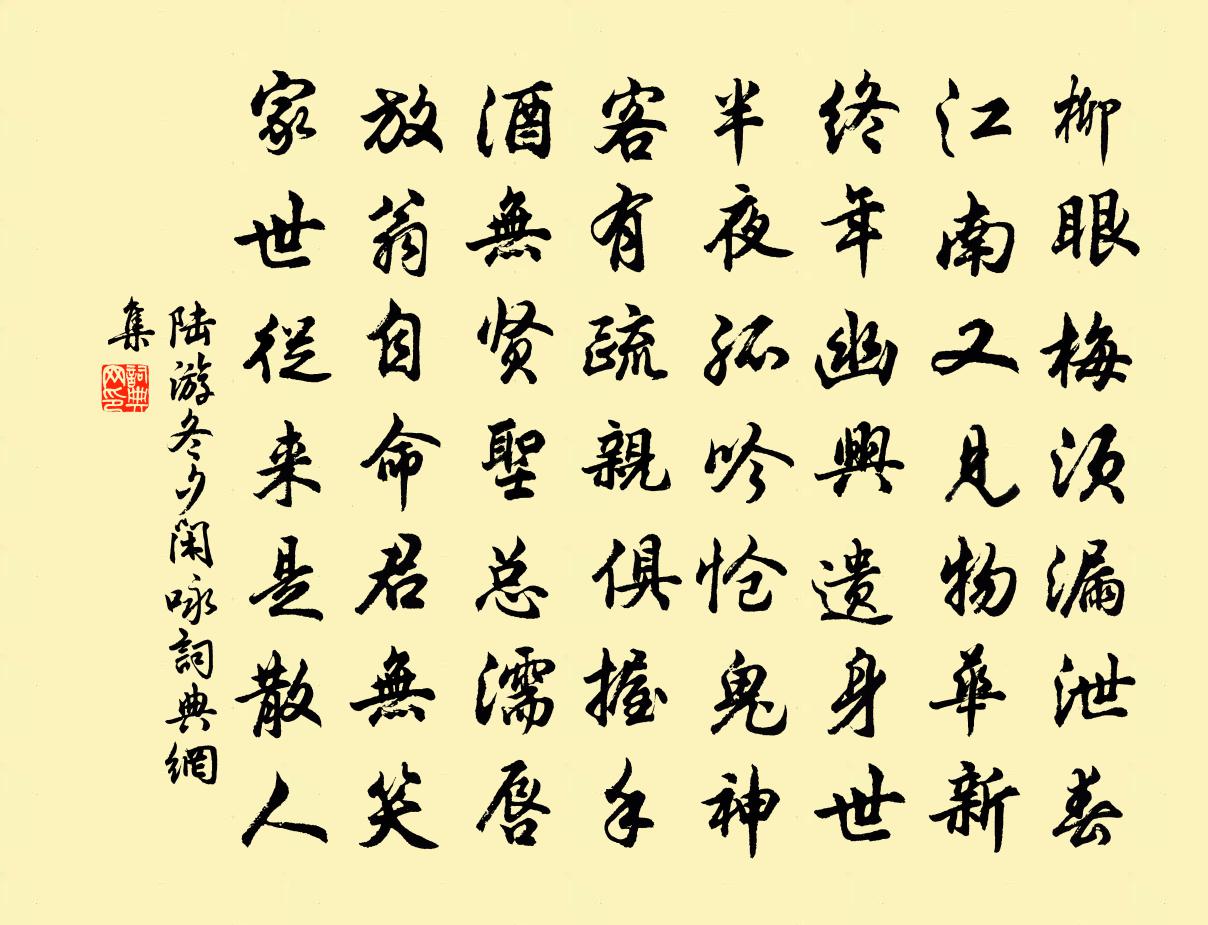 柳眼梅须漏泄春
江南又见物華新
终年幽興遗身世
半夜孤吟怆鬼神
客有疏親俱握手
酒無贤聖总濡唇
放翁自命君無笑
家世從来是散人
陆游冬夕闲咏詞典網
集
詞典网印